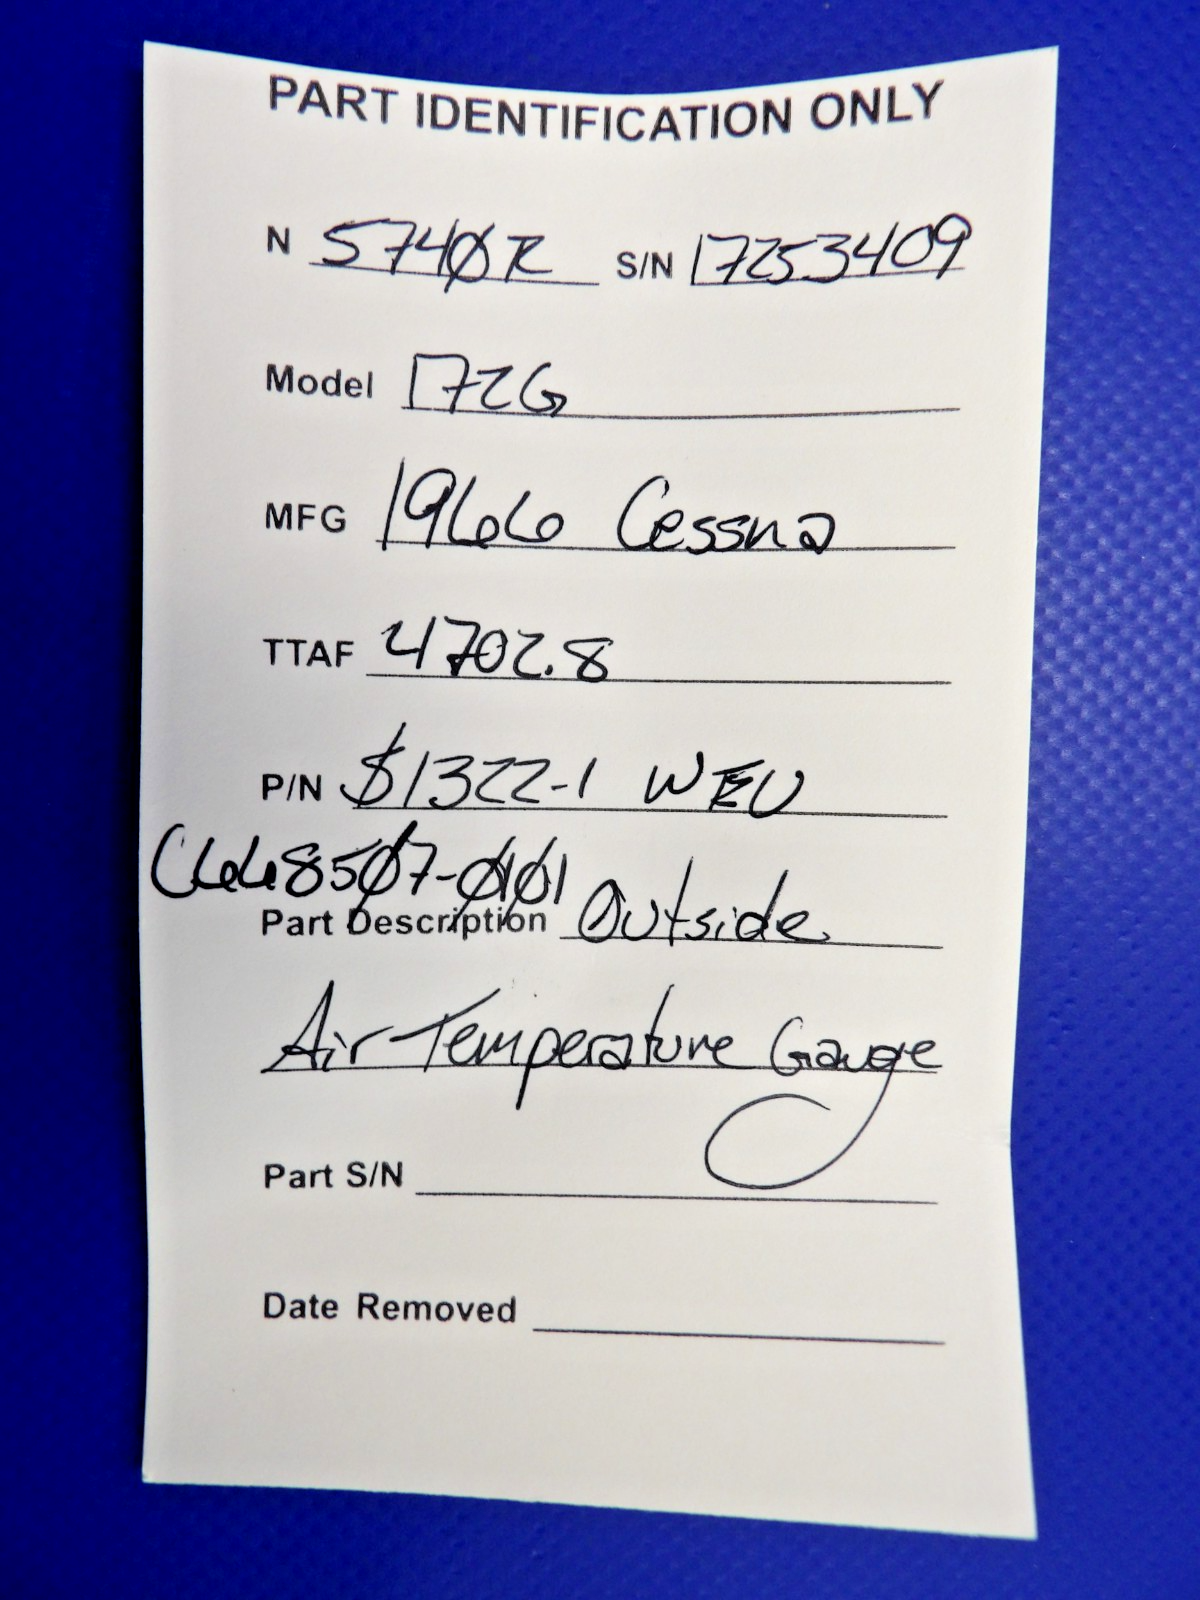 PART IDENTIFICATION ONLY
N 5740R S/N 17253409
Model 172G
MFG 1966 Cessna
TTAF 4702.8
P/N S1322-1 WEU
C668507-0101
Part Description Outside
Air Temperature Gauge
Part S/N
Date Removed